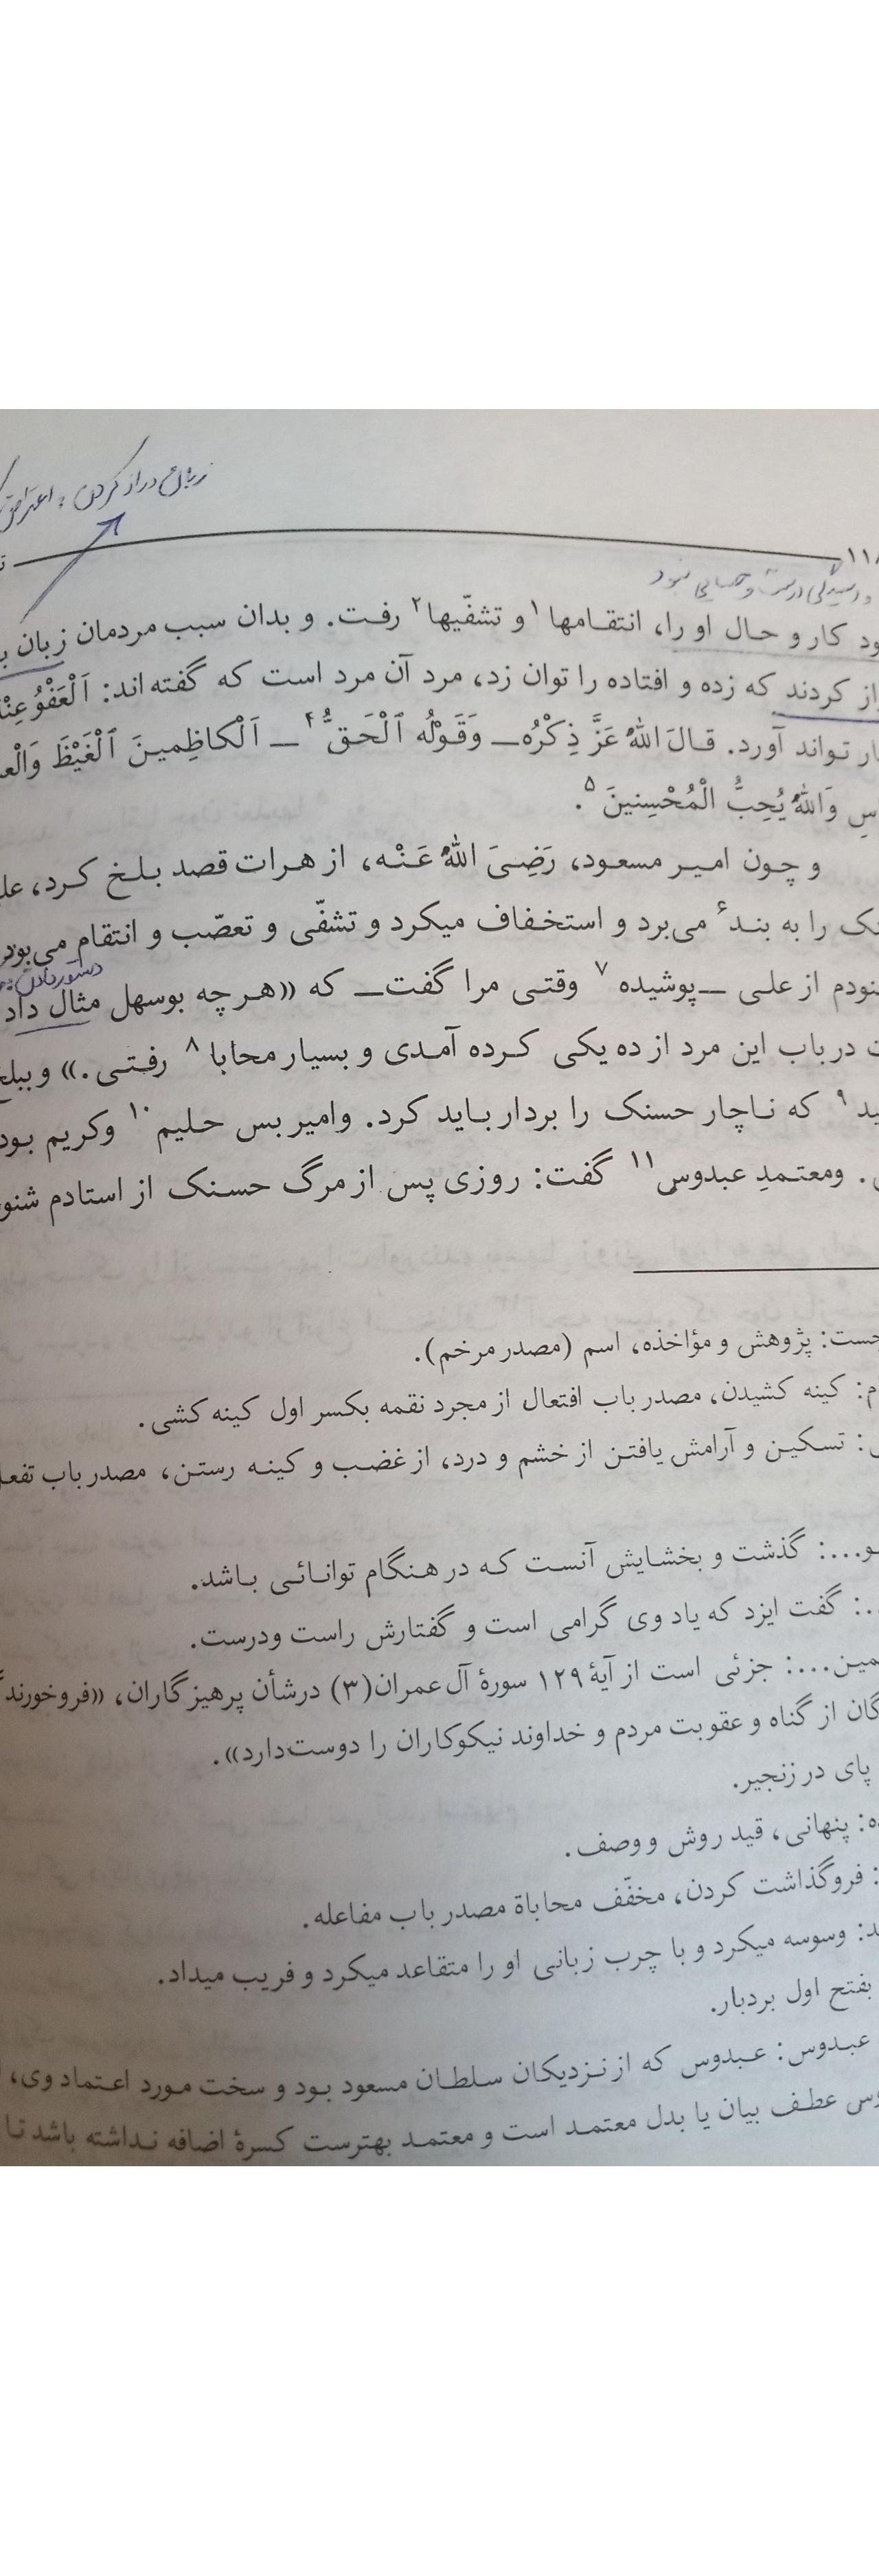 زبان دراز کردن: اعتراض
۱۱۸
رسیدگی درست و حسابی نبود
ود کار و حال او را، انتقامها۱ و تشفّیها۲ رفت. و بدان سبب مردمان زبان ب
از کردند که زده و افتاده را توان زد، مرد آن مرد است که گفته‌اند: اَلْعَفْوُ عِنْدَ
ار تواند آورد. قالَ اللهُ عَزَّ ذِکْرُه ــ وَقَوْلُه ٱلْحَقُّ۴ ــ اَلْکاظِمینَ ٱلْغَیْظَ وَالْعـ
سِ وَاللهُ یُحِبُّ الْمُحْسِنینَ۵.
و چون امیر مسعود، رَضِیَ اللهُ عَنْه، از هرات قصد بلخ کرد، علی
نک را به بند۶ می‌برد و استخفاف میکرد و تشفّی و تعصّب و انتقام می‌بود
دستور دادن
نودم از علی ــ پوشیده۷ وقتی مرا گفت ــ که «هر چه بوسهل مثال داد
ت در باب این مرد از ده یکی کرده آمدی و بسیار محابا۸ رفتی.» و ببلخ
ید۹ که ناچار حسنک را بردار باید کرد. وامیر بس حلیم۱۰ وکریم بود
. ومعتمدِ عبدوس۱۱ گفت: روزی پس از مرگ حسنک از استادم شنو
جست: پژوهش و مؤاخذه، اسم (مصدر مرخم).
م: کینه کشیدن، مصدر باب افتعال از مجرد نقمه بکسر اول کینه کشی.
ی: تسکین و آرامش یافتن از خشم و درد، از غضب و کینه رستن، مصدر باب تفعل
و...: گذشت و بخشایش آنست که در هنگام توانائی باشد.
...: گفت ایزد که یاد وی گرامی است و گفتارش راست ودرست.
مین...: جزئی است از آیهٔ ۱۲۹ سورهٔ آل عمران(۳) درشأن پرهیزگاران، «فروخورندگ
گان از گناه و عقوبت مردم و خداوند نیکوکاران را دوست‌دارد».
پای در زنجیر.
ه: پنهانی، قید روش و وصف.
: فروگذاشت کردن، مخفّف محاباة مصدر باب مفاعله.
ید: وسوسه میکرد و با چرب زبانی او را متقاعد میکرد و فریب میداد.
بفتح اول بردبار.
عبدوس: عبدوس که از نزدیکان سلطان مسعود بود و سخت مورد اعتماد وی،
وس عطف بیان یا بدل معتمد است و معتمد بهترست کسرهٔ اضافه نداشته باشد تا